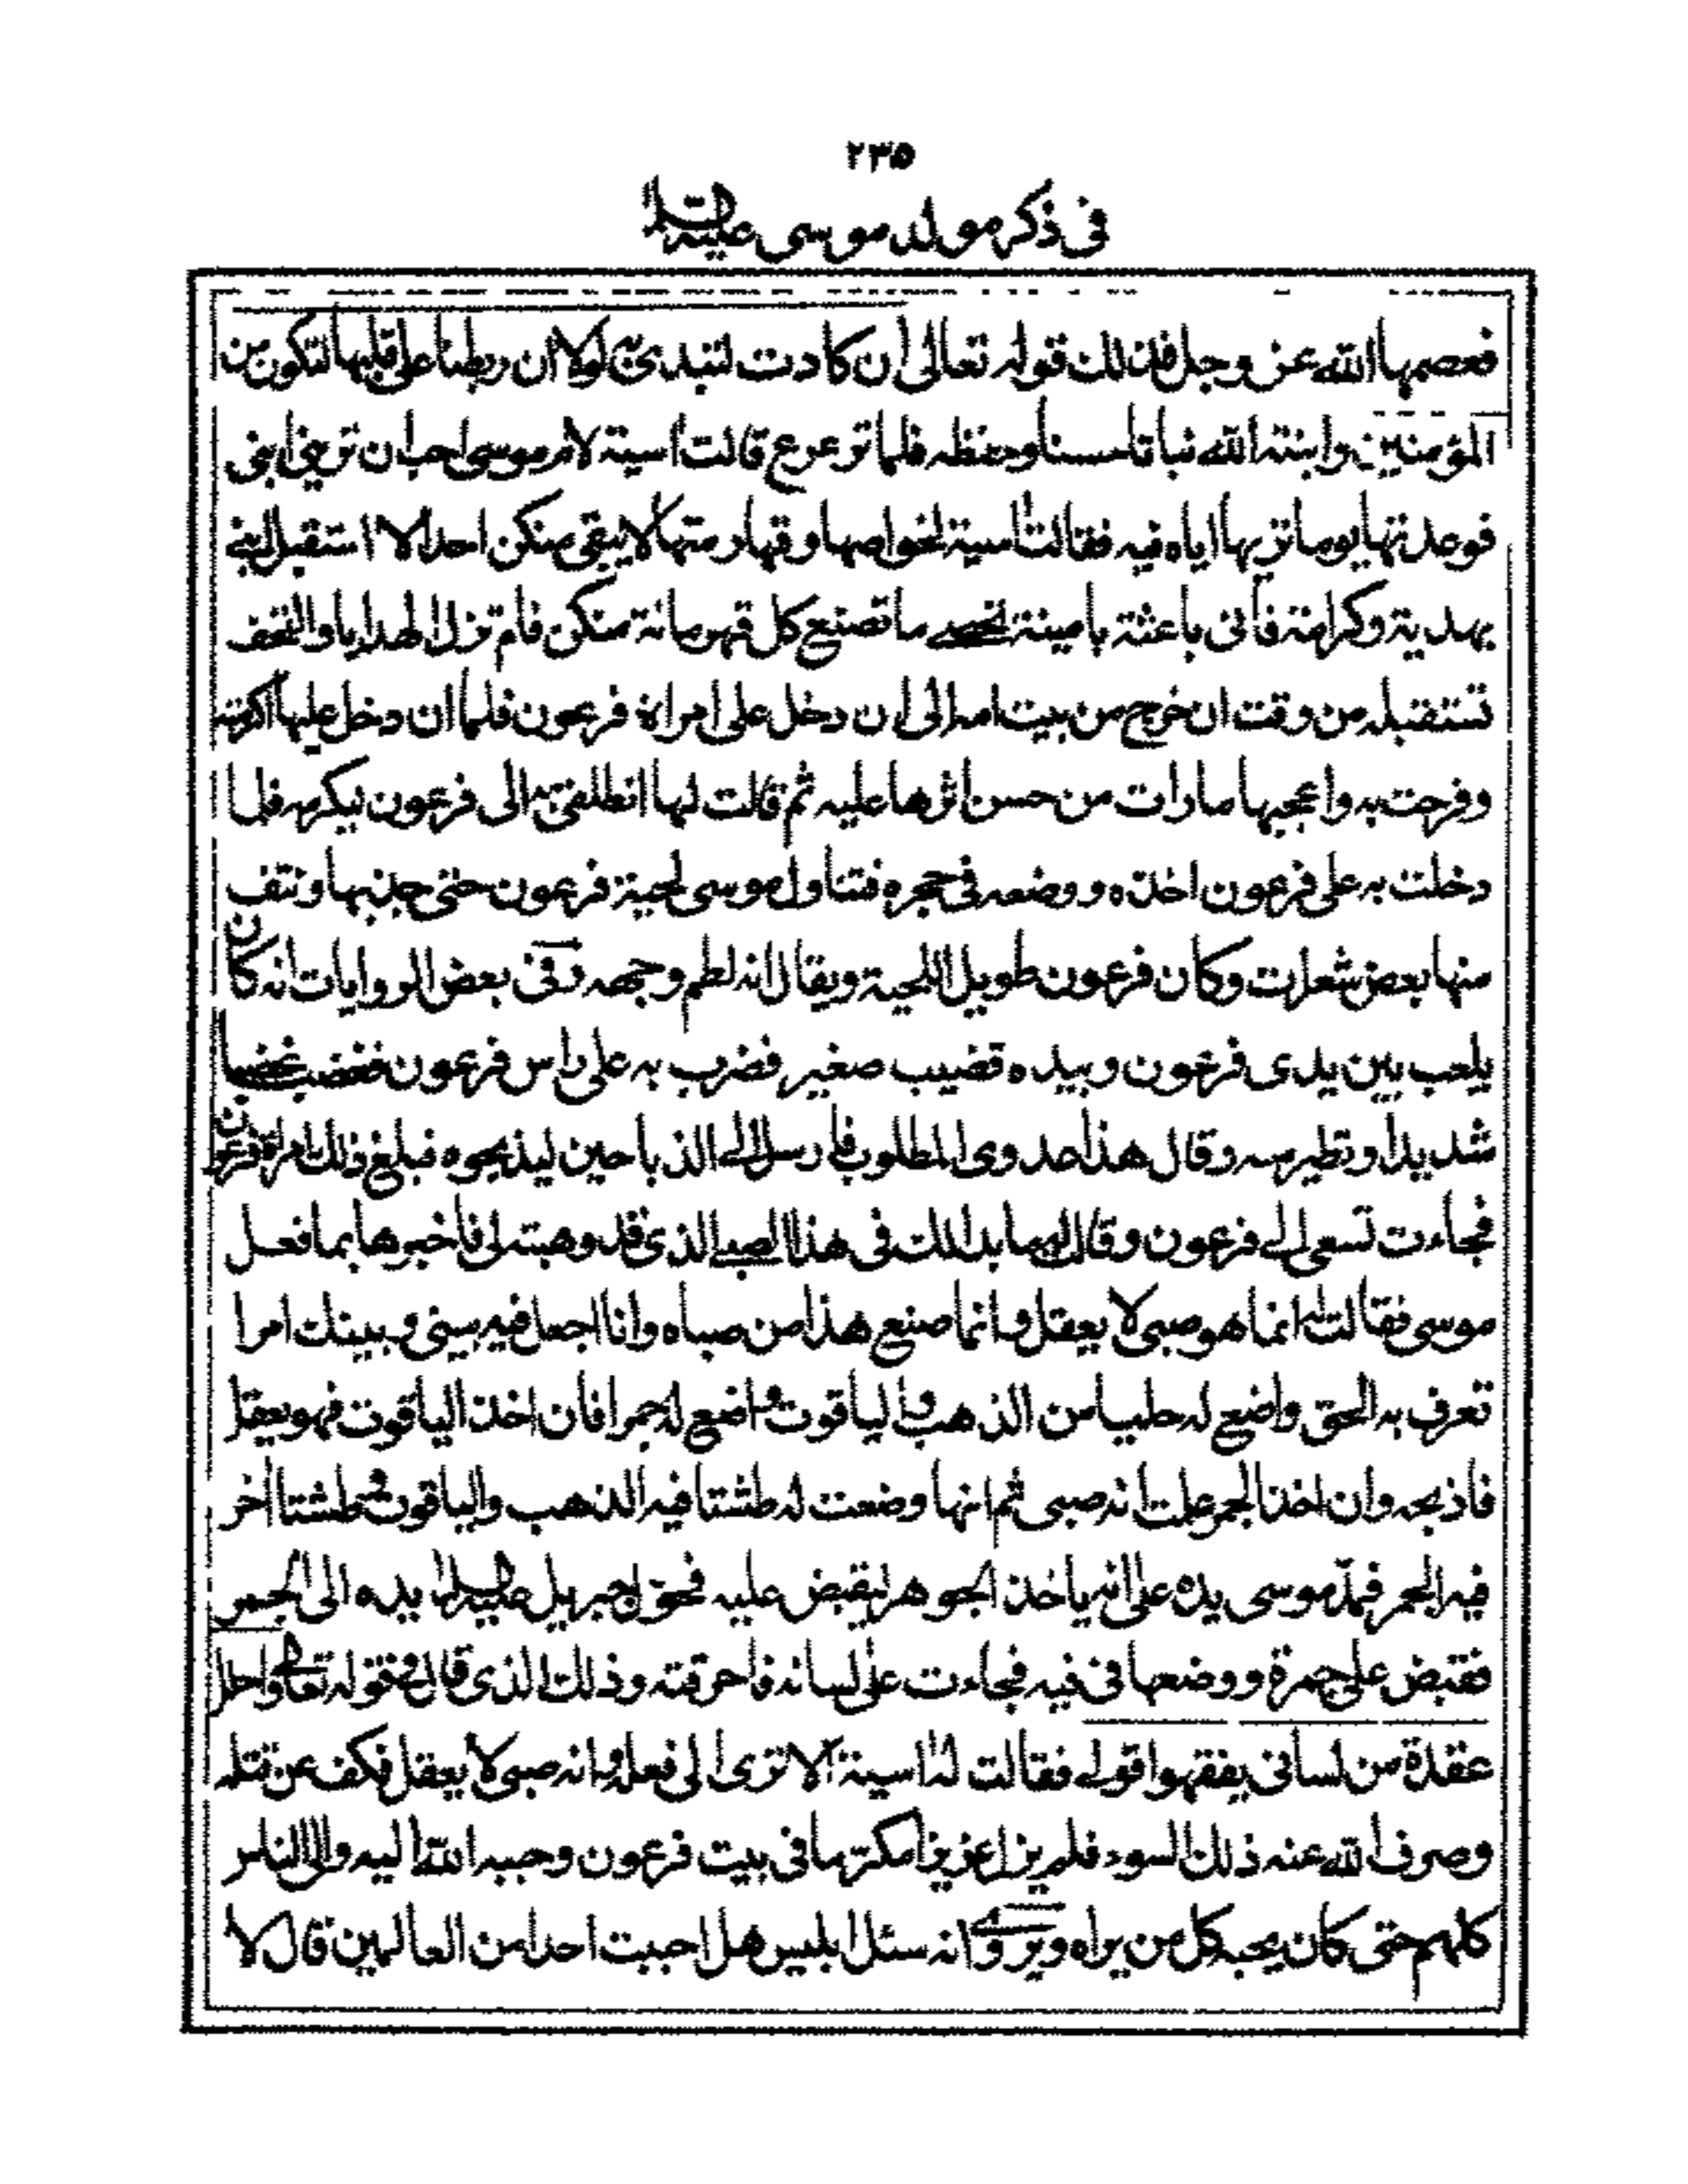 ٢٣٥
فى ذكر مولد موسى عليه السلام
فعصمها الله عز وجل فذلك قوله تعالى ان كادت لتبدى به لولا ان ربطنا على قلبها لتكون من
المؤمنين وانبته الله نباتا حسنا وحفظه فلما ترعرع قالت آسية لام موسى احب ان ترينى ابنى
فوعدتها يوما تزيها اياه فيه فقالت آسية لخواصها وقهارمتها لا يبقى منكن احد الا استقبل ابنى
بهدية وكرامة فأنى باعثة بامينة تحصى ما تصنع كل قهرمانة منكن فلم تزل الهدايا والتحف
تستقبله من وقت ان خرج من بيت امه الى ان دخل على امراة فرعون فلما ان دخل عليها اكرمته
وفرحت به واعجبها ما رات من حسن اثرها عليه ثم قالت لها انطلقى به الى فرعون ليكرمه فلما
دخلت به على فرعون اخذه ووضعه فى حجره فتناول موسى لحية فرعون حتى جذبها ونتف
منها بعض شعرات وكان فرعون طويل اللحية ويقال انه لطم وجهه وفى بعض الروايات انه كان
يلعب بين يدى فرعون وبيده قضيب صغير فضرب به على راس فرعون فغضب غضبا
شديدا وتطير منه وقال هذا عدوى المطلوب فارسل الى الذباحين ليذبحوه فبلغ ذلك امراة فرعون
فجاءت تسعى الى فرعون وقالت له ما بدا لك فى هذا الصبى الذى قد وهبته لى فاخبرها بما فعل
موسى فقالت له انما هو صبى لا يعقل وانما صنع هذا من صباه وانا اجعل فيه بينى وبينك امرا
تعرف به الحق واضع له حليا من الذهب والياقوت واضع له جمرا فان اخذ الياقوت فهو يعقل
فاذبحه وان اخذ الجمر علمت انه صبى ثم انها وضعت له طشتا فيه الذهب والياقوت وطشتا آخر
فيه الجمر فمدّ موسى يده على انه ياخذ الجوهر ليقبض عليه فحول جبريل عليه السلام يده الى الجمر
فقبض على جمرة ووضعها فى فيه فجاءت على لسانه فاحرقته وذلك الذى قال فى قوله تعالى واحلل
عقدة من لسانى يفقهوا قولى فقالت له آسية الا ترى الى فعله وانه صبى لا يعقل فكف عن قتله
وصرف الله عنه ذلك السوء فلم يزل عزيزا مكرما فى بيت فرعون وحببه الله اليه والى الناس
كلهم حتى كان يحبه كل من يراه ويروى انه سئل ابليس هل احببت احدا من العالمين قال لا